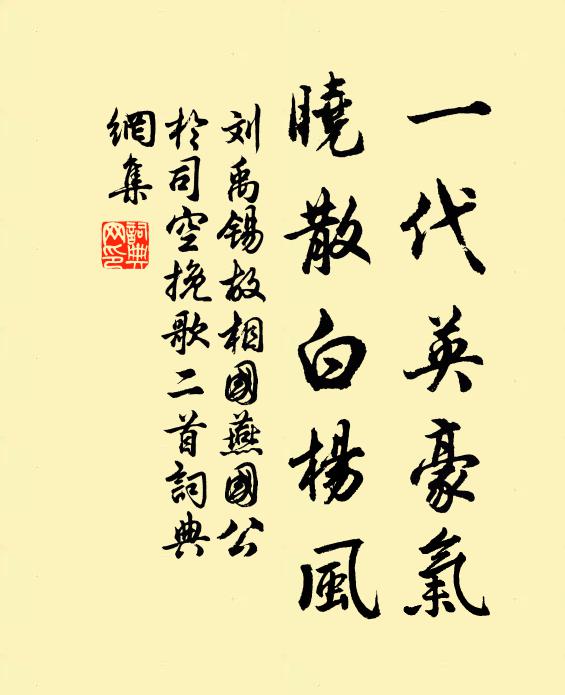 一代英豪氣
曉散白楊風
刘禹锡故相國燕國公
於司空挽歌二首詞典
網集
詞典
网印